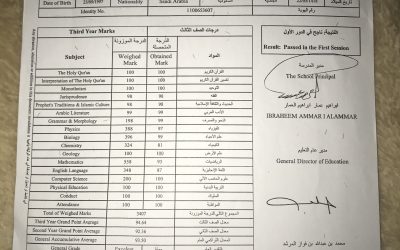 Date of Birth 23/08/1997 Nationality Saudi Arabia
Identity No. 1100653607
Third Year Marks درجات الصف الثالث
Subject Weighed Mark الدرجة الموزونة Obtained Mark الدرجة المتحصلة المواد
The Holy Qur'an 100 100 القرآن الكريم
Interpretation of The Holy Qur'an 100 100 تفسير القرآن الكريم
Monotheism 100 100 التوحيد
Jurisprudence 98 98 الفقه
Prophet's Traditions & Islamic Culture 98 98 الحديث والثقافة الإسلامية
Arabic Literature 99 99 الأدب العربي
Grammar & Morphology 198 99 النحو والصرف
Physics 388 الفيزياء
Biology 396 99 الأحياء
Chemistry 324 81 الكيمياء
Geology 100 100 علم الأرض
Mathematics 558 93 الرياضيات
English Language 348 87 اللغة الإنجليزية
Computer Science 200 100
Physical Education 100 100 التربية البدنية
Conduct 100 100 السلوك
Attendance 100 100 المواظبة
Total of Weighed Marks 5407
Third Year Grand Point Average 94.64 معدل الصف الثالث
Second Year Grand Point Average 92.36 معدل الصف الثاني
General Accumulative Average 93.50 المعدل التراكمي العام
General Grade
رقم الهوية
النتيجة: ناجح في الدور الأول
Result: Passed in the First Session
مدير المدرسة
The School Principal
ابراهيم عمار ابراهيم العمار
IBRAHEEM AMMAR I ALAMMAR
مدير عام التعليم
General Director of Education
محمد بن عبدالله بن فواز المرشد